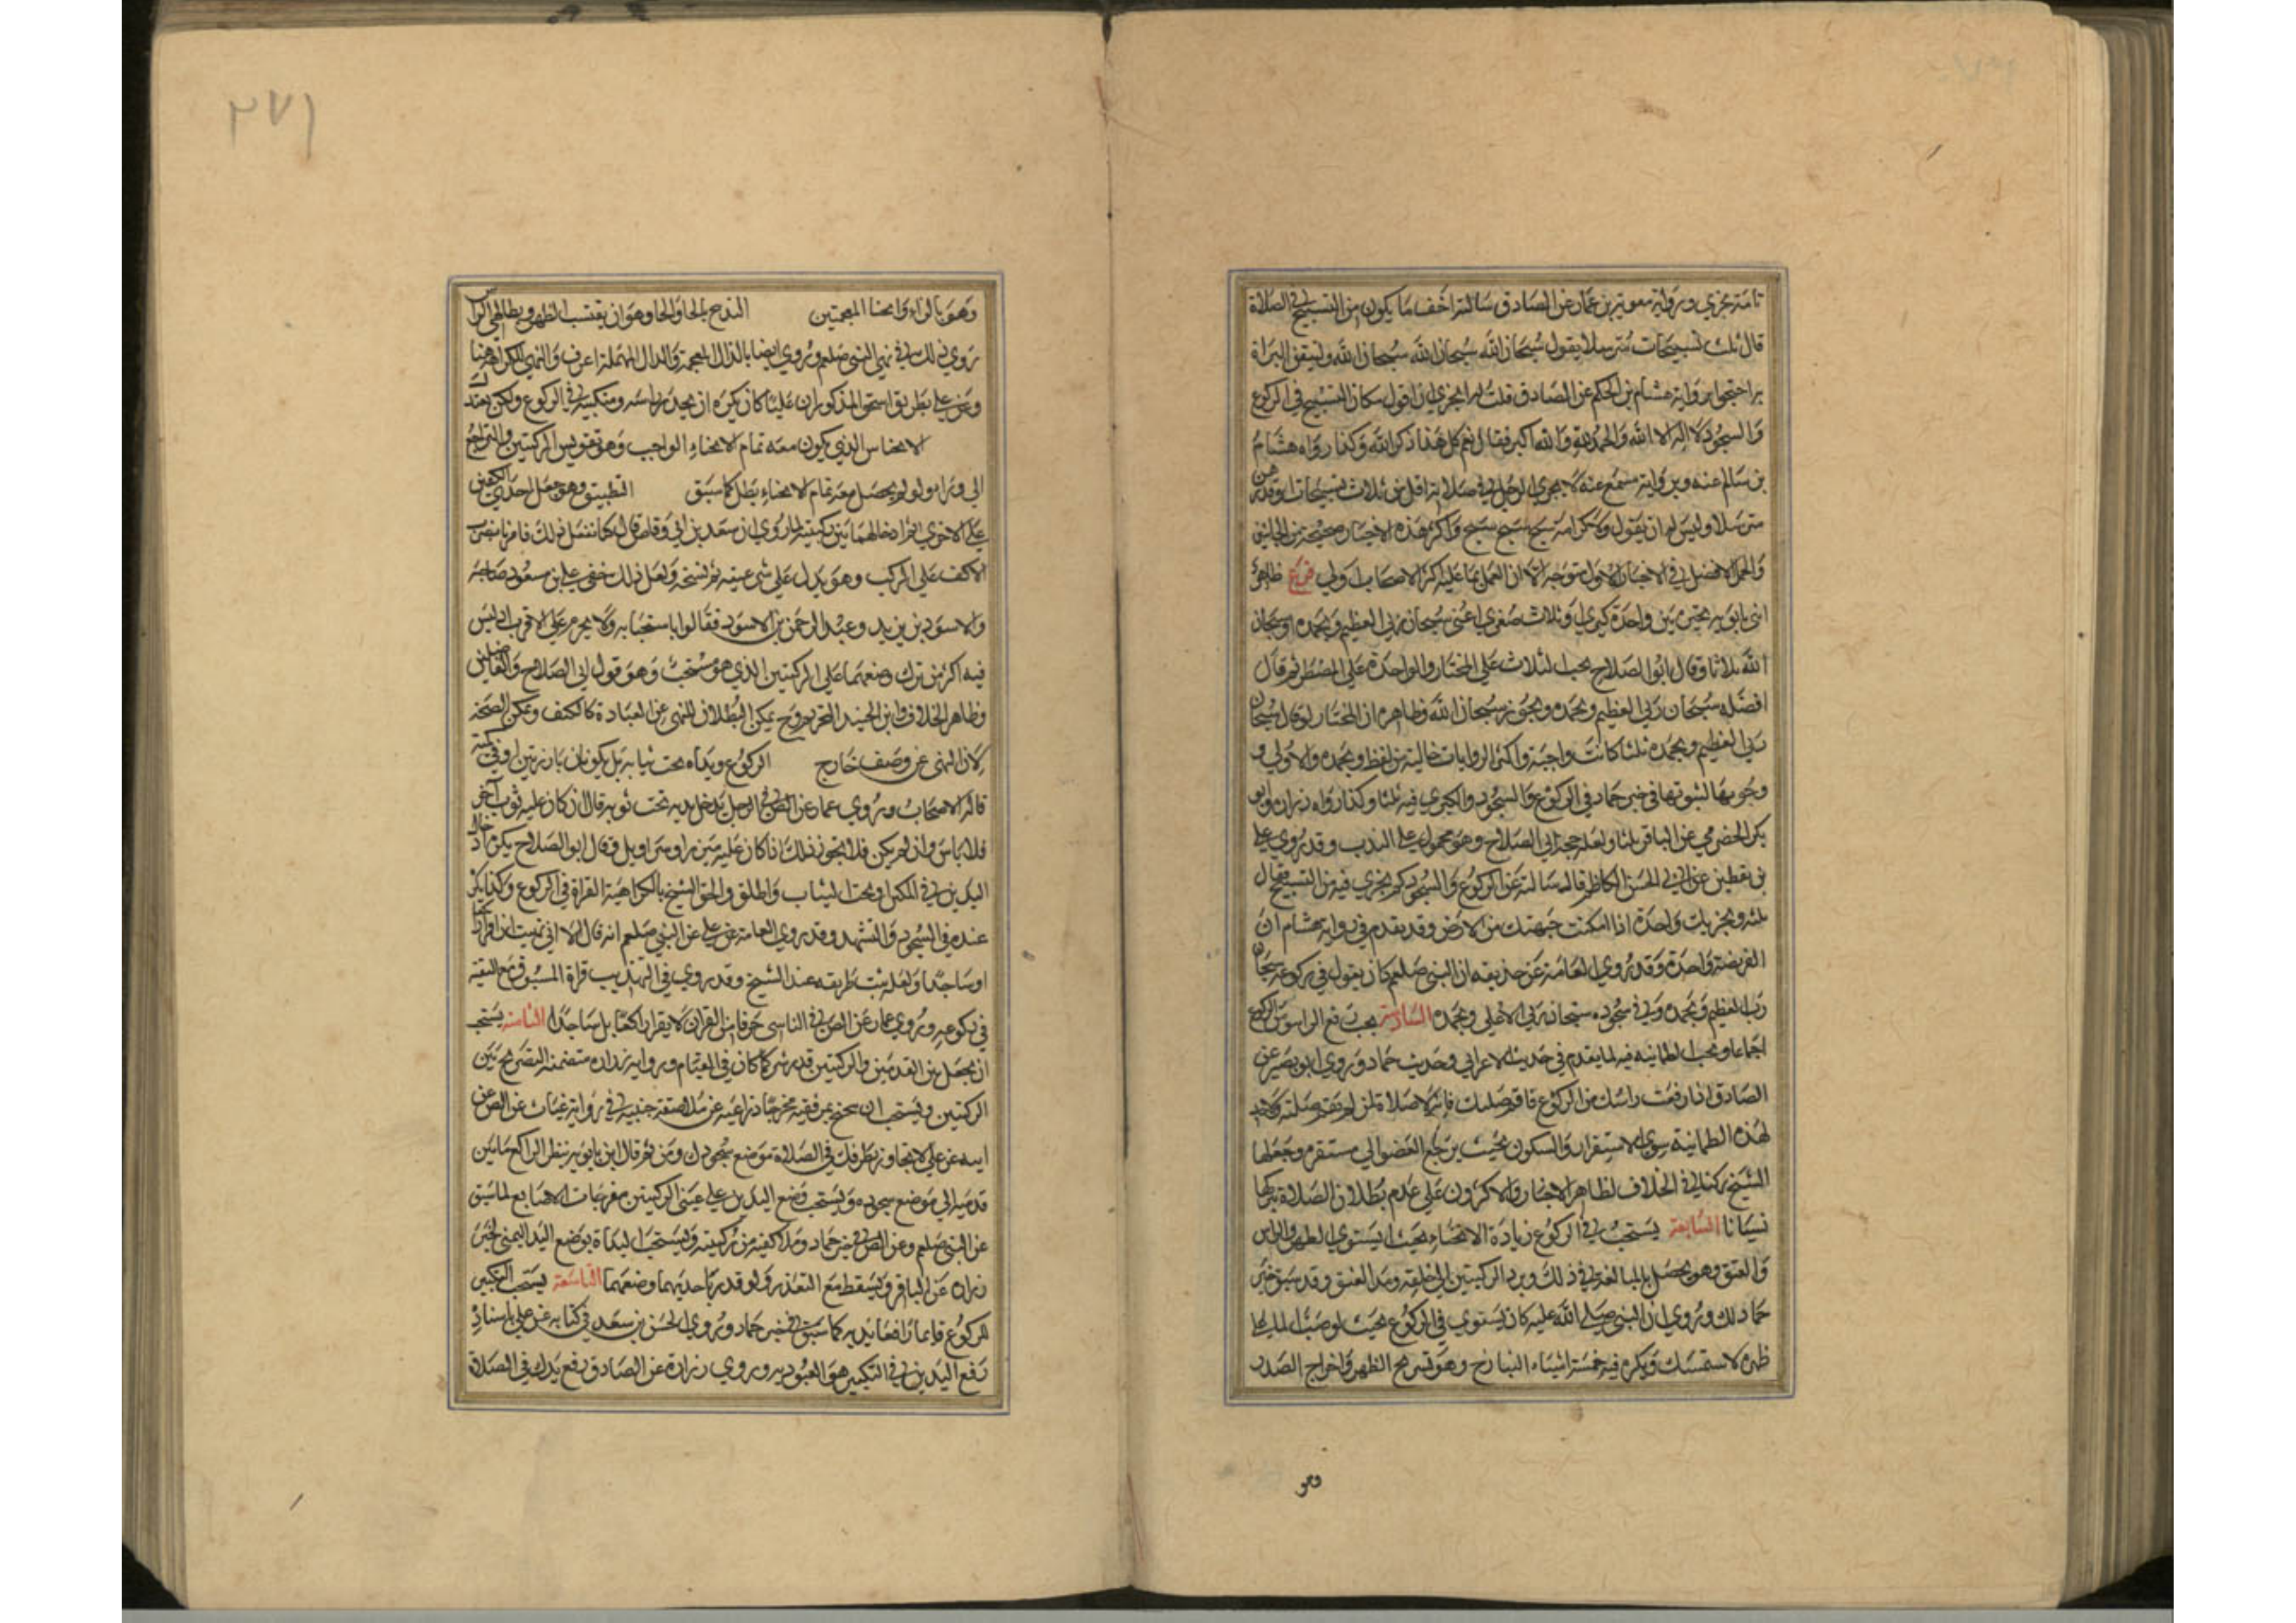 تامة تجزي ورواية معوية بن عمار عن الصادق سالته اخف ما يكون من التسبيح في الصلاة
قال ثلث تسبيحات مترسلا يقول سبحان الله سبحان الله سبحان الله
احتجوا برواية هشام بن الحكم عن الصادق قلت له ايجزي ان اقول مكان التسبيح في الركوع
والسجود لا اله الا الله والحمد لله والله اكبر فقال نعم كل هذا ذكر الله وكذا رواه هشام
بن سالم عنه وبرواية مسمع عنه لا يجزي الرجل في صلاته اقل من ثلاث تسبيحات او قدرهن
مترسلا وليس له ان يقول ولا كرامة سبح سبح سبح واكثر هذه الاخبار صحيحة
والحمل الافضل في الاخبار الاول متوجه الا ان العمل بما عليه اكثر الاصحاب اولى فرع ظاهر
ابني بابويه تخير بين واحدة كبرى او ثلاث صغرى اعني سبحان ربي العظيم وبحمده او سبحان
الله ثلاثا وقال ابو الصلاح يجب الثلاث على المختار والواحدة على المضطر ثم قال
افضله سبحان ربي العظيم وبحمده ويجوز سبحان الله وظاهره ان المختار لو قال سبحان
ربي العظيم وبحمده ثلثا كانت واجبة واكثر الروايات خالية من لفظ وبحمده والاولى
وجوبها لثبوتها في خبر حماد في الركوع والسجود والكبرى فيه ثلثا وكذا رواه زرارة وابو
بكر الحضرمي عن الباقر ثلثا ولعله حجة ابي الصلاح وهو محمول على الندب وقد روي علي
بن يقطين عن ابي الحسن الكاظم قال سالته عن الركوع والسجود كم يجزي فيه من التسبيح فقال
ثلثه وتجزيك واحدة اذا امكنت جبهتك من الارض وقد تقدم في رواية هشام ان
الفريضة واحدة وقد روي العامة عن حذيفه ان النبي صلعم كان يقول في ركوعه سبحان
رب العظيم وبحمده وفي سجوده سبحان ربي الاعلى وبحمده السادسة يجب رفع الراس من الركوع
اجماعا وتجب الطمانينه فيه لما تقدم في حديث الاعرابي وحديث حماد وروي ابو بصير عن
الصادق اذا رفعت راسك من الركوع فاقم صلبك فانه لا صلاة لمن لم يقم صلبه
لهذه الطمانينة سوى الاستقرار والسكون بحيث يرجع العضو الى مستقره وجعلها
الشيخ ركنا في الخلاف لظاهر الاخبار والاكثرون على عدم بطلان الصلاة بتركها
نسيانا السابعة يستحب في الركوع زيادة الانحناء بحيث يستوي الظهر والراس
والعنق وهو يحصل بالمبالغة في ذلك وبرد الركبتين الى خلفه ومد العنق وقد سبق خبر
حماد لك وروي ان النبي صلى الله عليه كان يستوي في الركوع بحيث لو صب الماء على
ظهره لاستمسك ويكره فيه خمسة اشياء التبازخ وهو تسريح الظهر واخراج الصدر
وهو
٢٧١
وهو بالزاء والخاء المعجمتين التدبيح بالحاء وهو ان يقتب الظهر ويطاطي الراس
روي ذلك في نهي النبي صلعم وروي ايضا بالذال المعجمة والدال المهملة اعرف والنهي للكراهة هنا
وعن علي بطريق اسحق المذكور ان عليا كان يكره ان يحدر راسه ومنكبيه في الركوع ولكن يعتدل
الانخناس الذي يكون معه تمام الانحناء الواجب وهو تقويس الركبتين والتراجع
الى وراء ولو لم يحصل معه تمام الانحناء بطل كما سبق التطبيق وهو جعل احدى الكفين
على الاخرى ثم ادخالهما بين ركبتيه لما روي ان سعد بن ابي وقاص قال كنا نفعل ذلك فامرنا بضرب
الاكف على الركب وهو يدل على شرعيته ثم نسخه ولعل ذلك خفي على بن مسعود صاحبه
والاسود بن يزيد وعبد الرحمن بن الاسود فقالوا باستحبابه ولا يحرم على الاقرب اذ ليس
فيه اكثر من ترك وضعهما على الركبتين الذي هو مستحب وهو قول ابي الصلاح والفاضلين
وظاهر الخلاف وابن الجنيد التحريم وح يمكن البطلان للنهي عن العبادة كالكتف ويمكن الصحة
لان النهي عن وصف خارج الركوع ويداه تحت ثيابه بل يكونان بارزتين او في كميه
قاله الاصحاب وروي عمار عن الص في الرجل يدخل يديه تحت ثوبه قال ان كان عليه ثوب آخر
فلا باس وان لم يكن فلا يجوز ذلك وقال ابو الصلاح يكره ادخال
اليدين في الكمين او تحت الثياب واطلق والحق الشيخ بالكراهية القراة في الركوع وكذا يكره
عنده في السجود والتشهد وقد روي العامة عن علي عن النبي صلعم انه قال الا اني نهيت ان اقرا راكعا
او ساجدا ولعله ثبت طريقه عند الشيخ وقد روي في التهذيب قراة المسبوق مع التقية
في ركوعه وروي عمار عن الص في الناسي حرفا من القران لا يقرا راكعا بل ساجدا الثامنة يستحب
ان يجعل بين القدمين والركبتين قدر شبر كما كان في القيام ورواية زرارة متضمنه
الركبتين ويستحب ان يجنح بمرفقيه مخرجا ذراعيه عن ملاصقة جنبيه في رواية غياث عن الص عن
ابيه عن علي لا تجاوز بطرفك في الصلاة موضع سجودك ومن ثم قال ابن بابويه ينظر الراكع ما بين
قدميه الى موضع سجوده ويستحب وضع اليدين على عيني الركبتين مفرجات الاصابع لما سبق
عن النبي صلعم وعن الص في خبر حماد وملا كفيه من ركبتيه ويستحب البداة بوضع اليد اليمنى لخبر
زرارة عن الباقر ويسقط مع التعذر ولو قدر باحديهما وضعهما التاسعة يستحب التكبير
للركوع قايما رافعا يديه كما سبق في خبر حماد وروي الحسن بن سعيد في كتابه عن علي باسناد
رفع اليدين في التكبير هو العبودية وروي زرارة عن الصادق رفع يديك في الصلاة